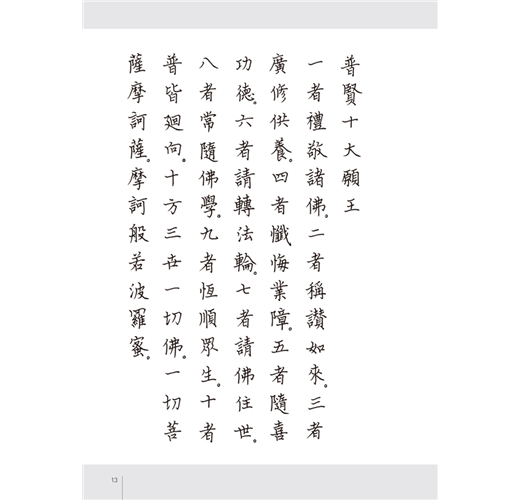 普賢十大願王
一者禮敬諸佛。二者稱讚如來。三者
廣修供養。四者懺悔業障。五者隨喜
功德。六者請轉法輪。七者請佛住世。
八者常隨佛學。九者恆順眾生。十者
普皆迴向。十方三世一切佛。一切菩
薩摩訶薩。摩訶般若波羅蜜。
13